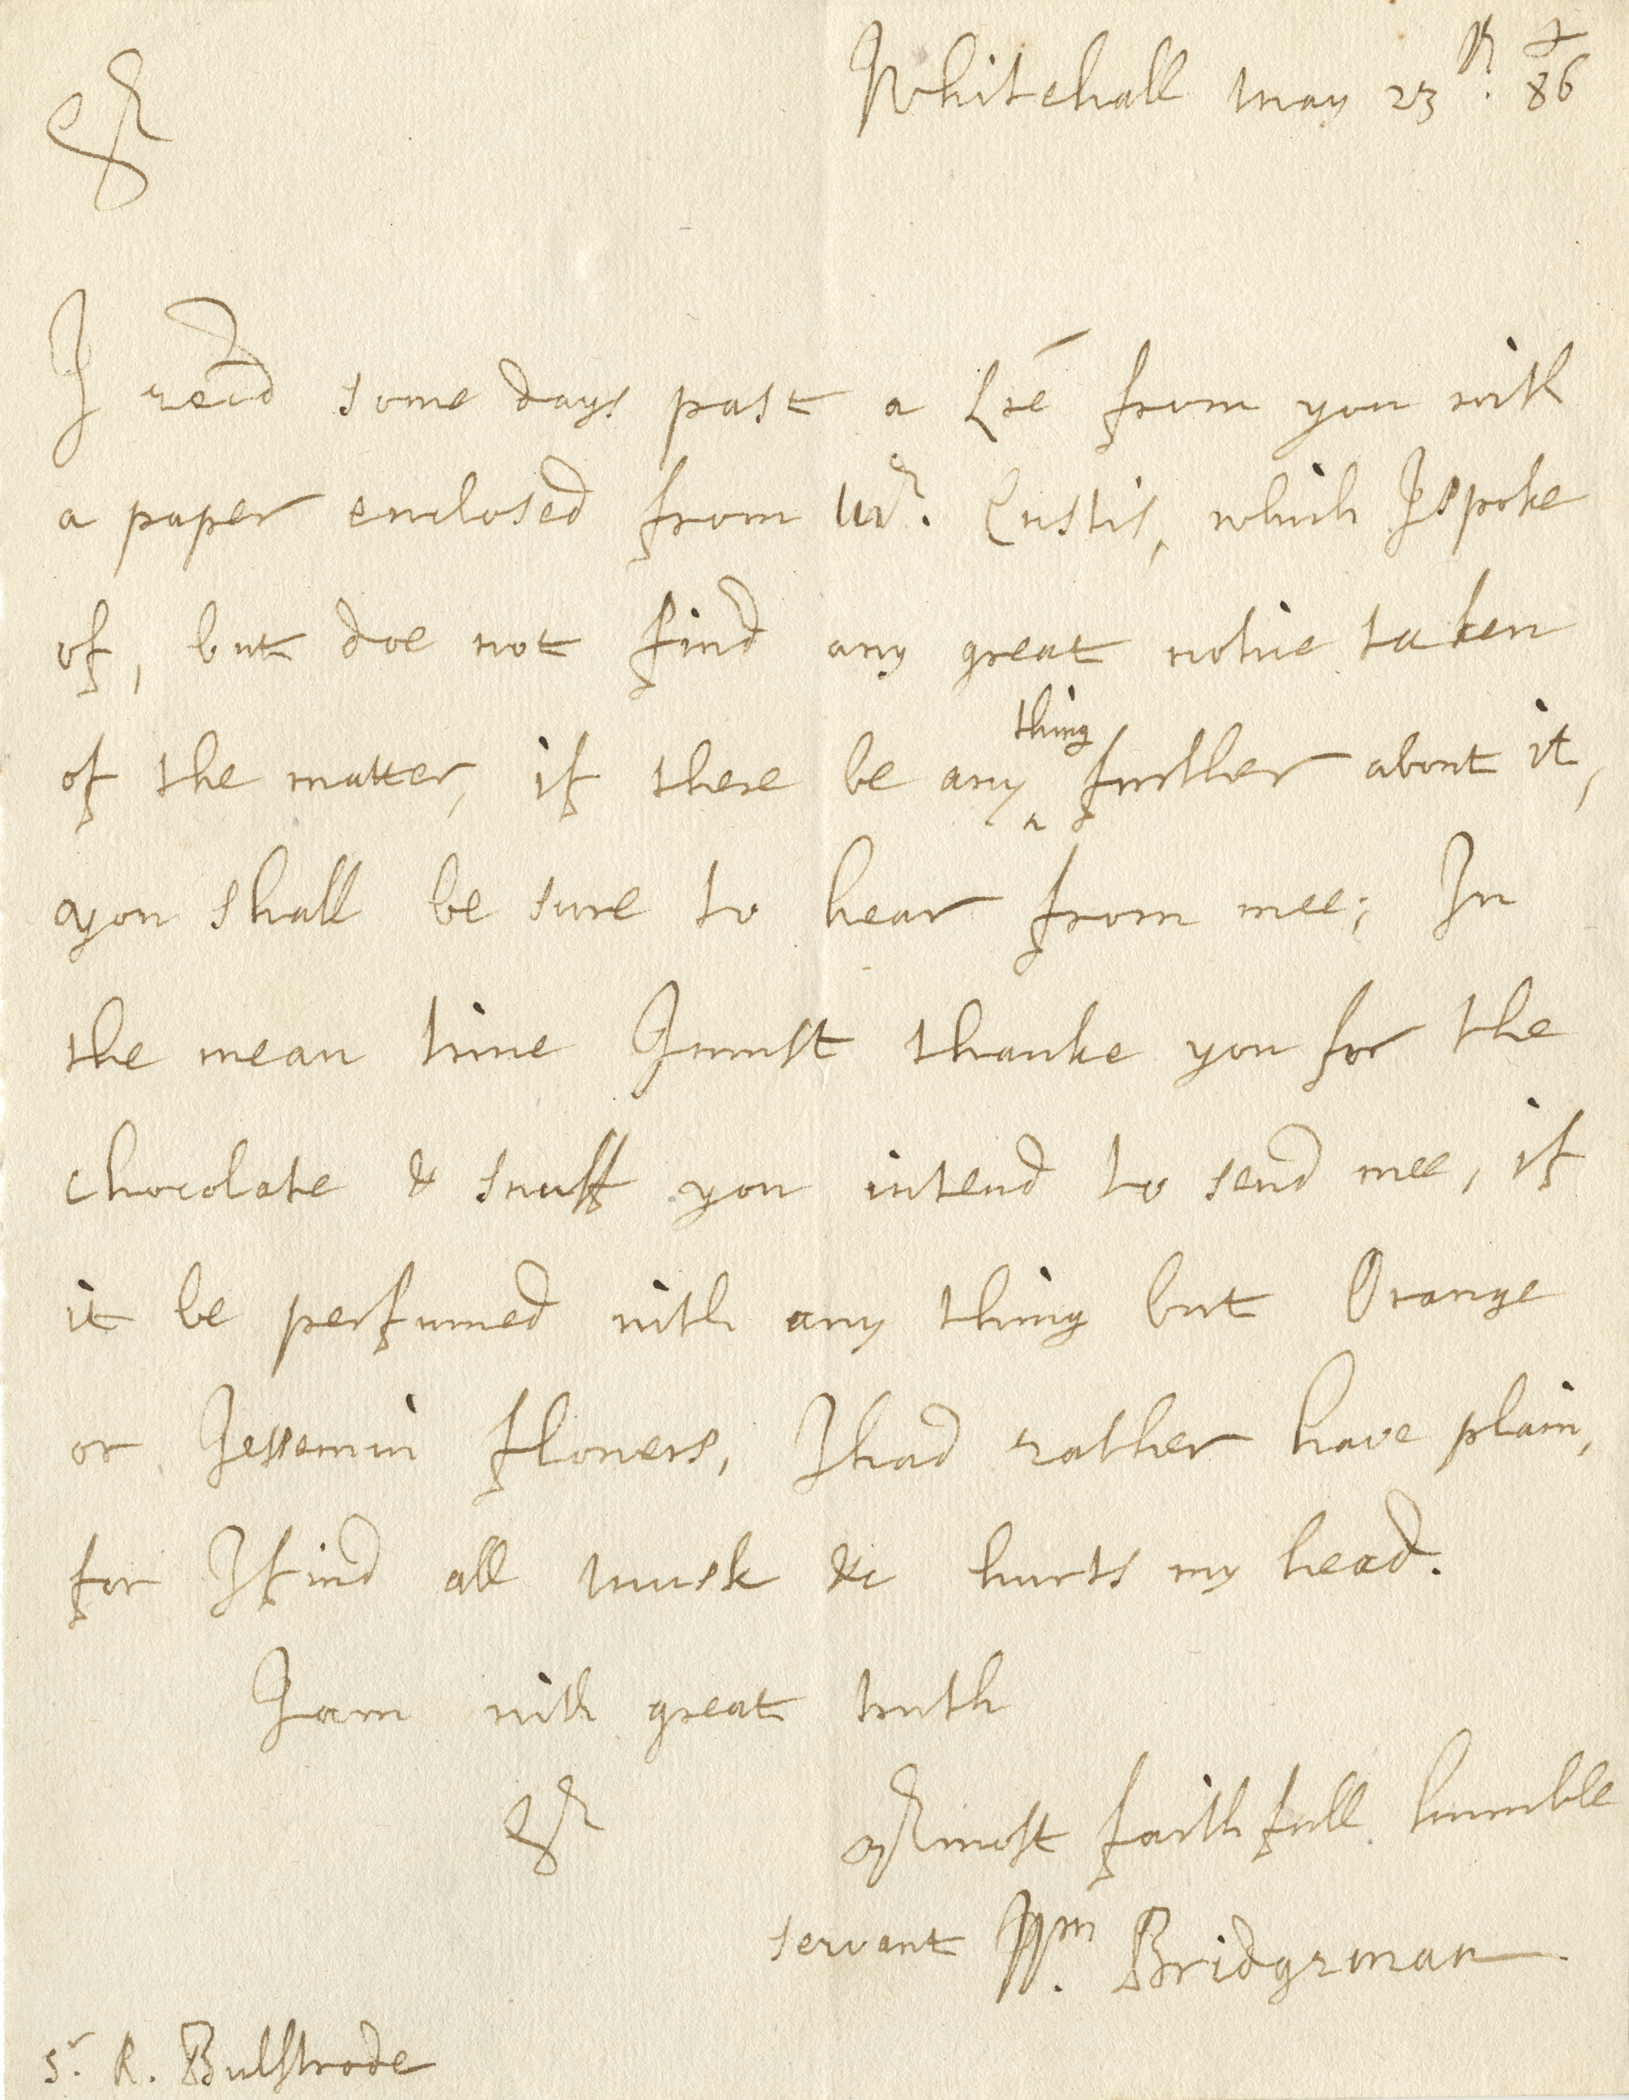 Whitehall may 23th. 86
Sr
I recd some days past a Lre from you with
a paper enclosed from Mr. Custis, which I spoke
of, but doe not find any great notice taken
of the matter, if there be any ^thing further about it,
you shall be sure to hear from mee; In
the mean time I must thanke you for the
chocolate & snuff you intend to send mee, if
it be perfumed with any thing but Orange
or Jessemin flowers, I had rather have plain,
for I find all musk &c hurts my head.
I am with great truth
Sr yr most faithfull humble
servant Wm. Bridgeman
Sr. R. Bulstrode